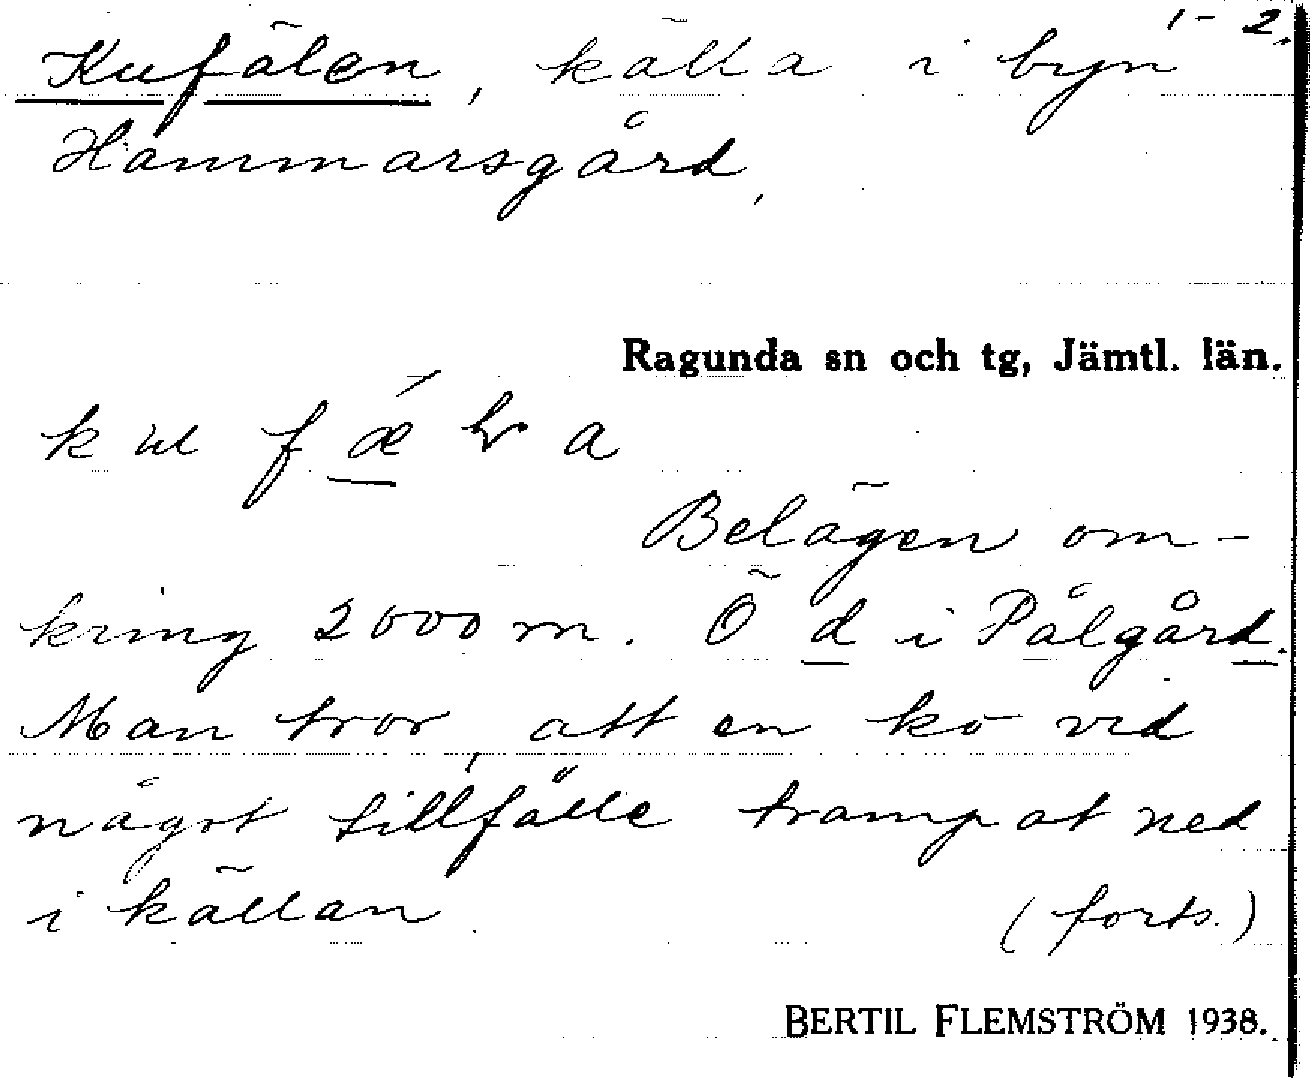 1-2.
Kufälen, källa i byn
Hammarsgård,
Ragunda sn och tg, Jämtl. län.
Belägen om-
kring 2000 m. Ö d i Pålgård.
Man tror, att en ko vid
något tillfälle trampat ned
i källan
(forts.)
BERTIL FLEMSTRÖM 1938.